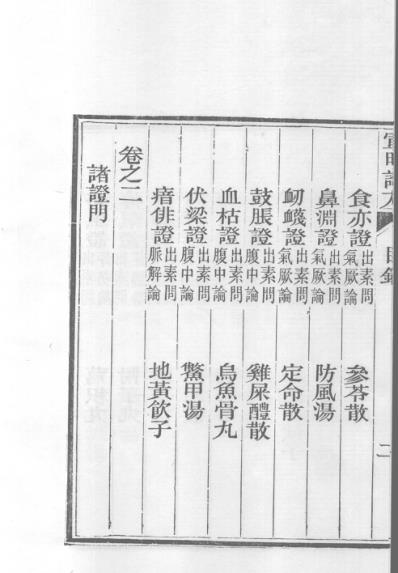 宣明論方 目錄 二
食亦證 出素問氣厥論 參苓散
鼻淵證 出素問氣厥論 防風湯
衂衊證 出素問氣厥論 定命散
鼓脹證 出素問腹中論 雞屎醴散
血枯證 出素問腹中論 烏魚骨丸
伏梁證 出素問腹中論 鱉甲湯
瘖俳證 出素問脈解論 地黃飲子
卷之二
諸證門